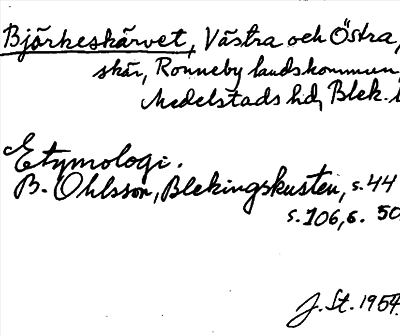 Björkeskärvet, Västra och Östra,
skär, Ronneby landskommun,
Medelstads hd, Blek. l
Etymologi.
B. Ohlsson, Blekingskusten, s. 44
s. 106, s. 50
J. St. 1954.